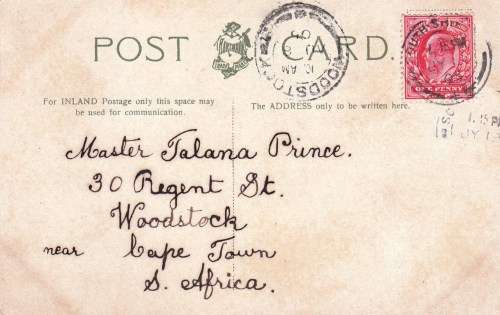 POST CARD.
For INLAND Postage only this space may
be used for communication.
The ADDRESS only to be written here.
WOODSTOCK
10 AM
ONE PENNY
1.15 P
JY 1
Master Talana Prince.
30 Regent St.
Woodstock
near Cape Town
S. Africa.